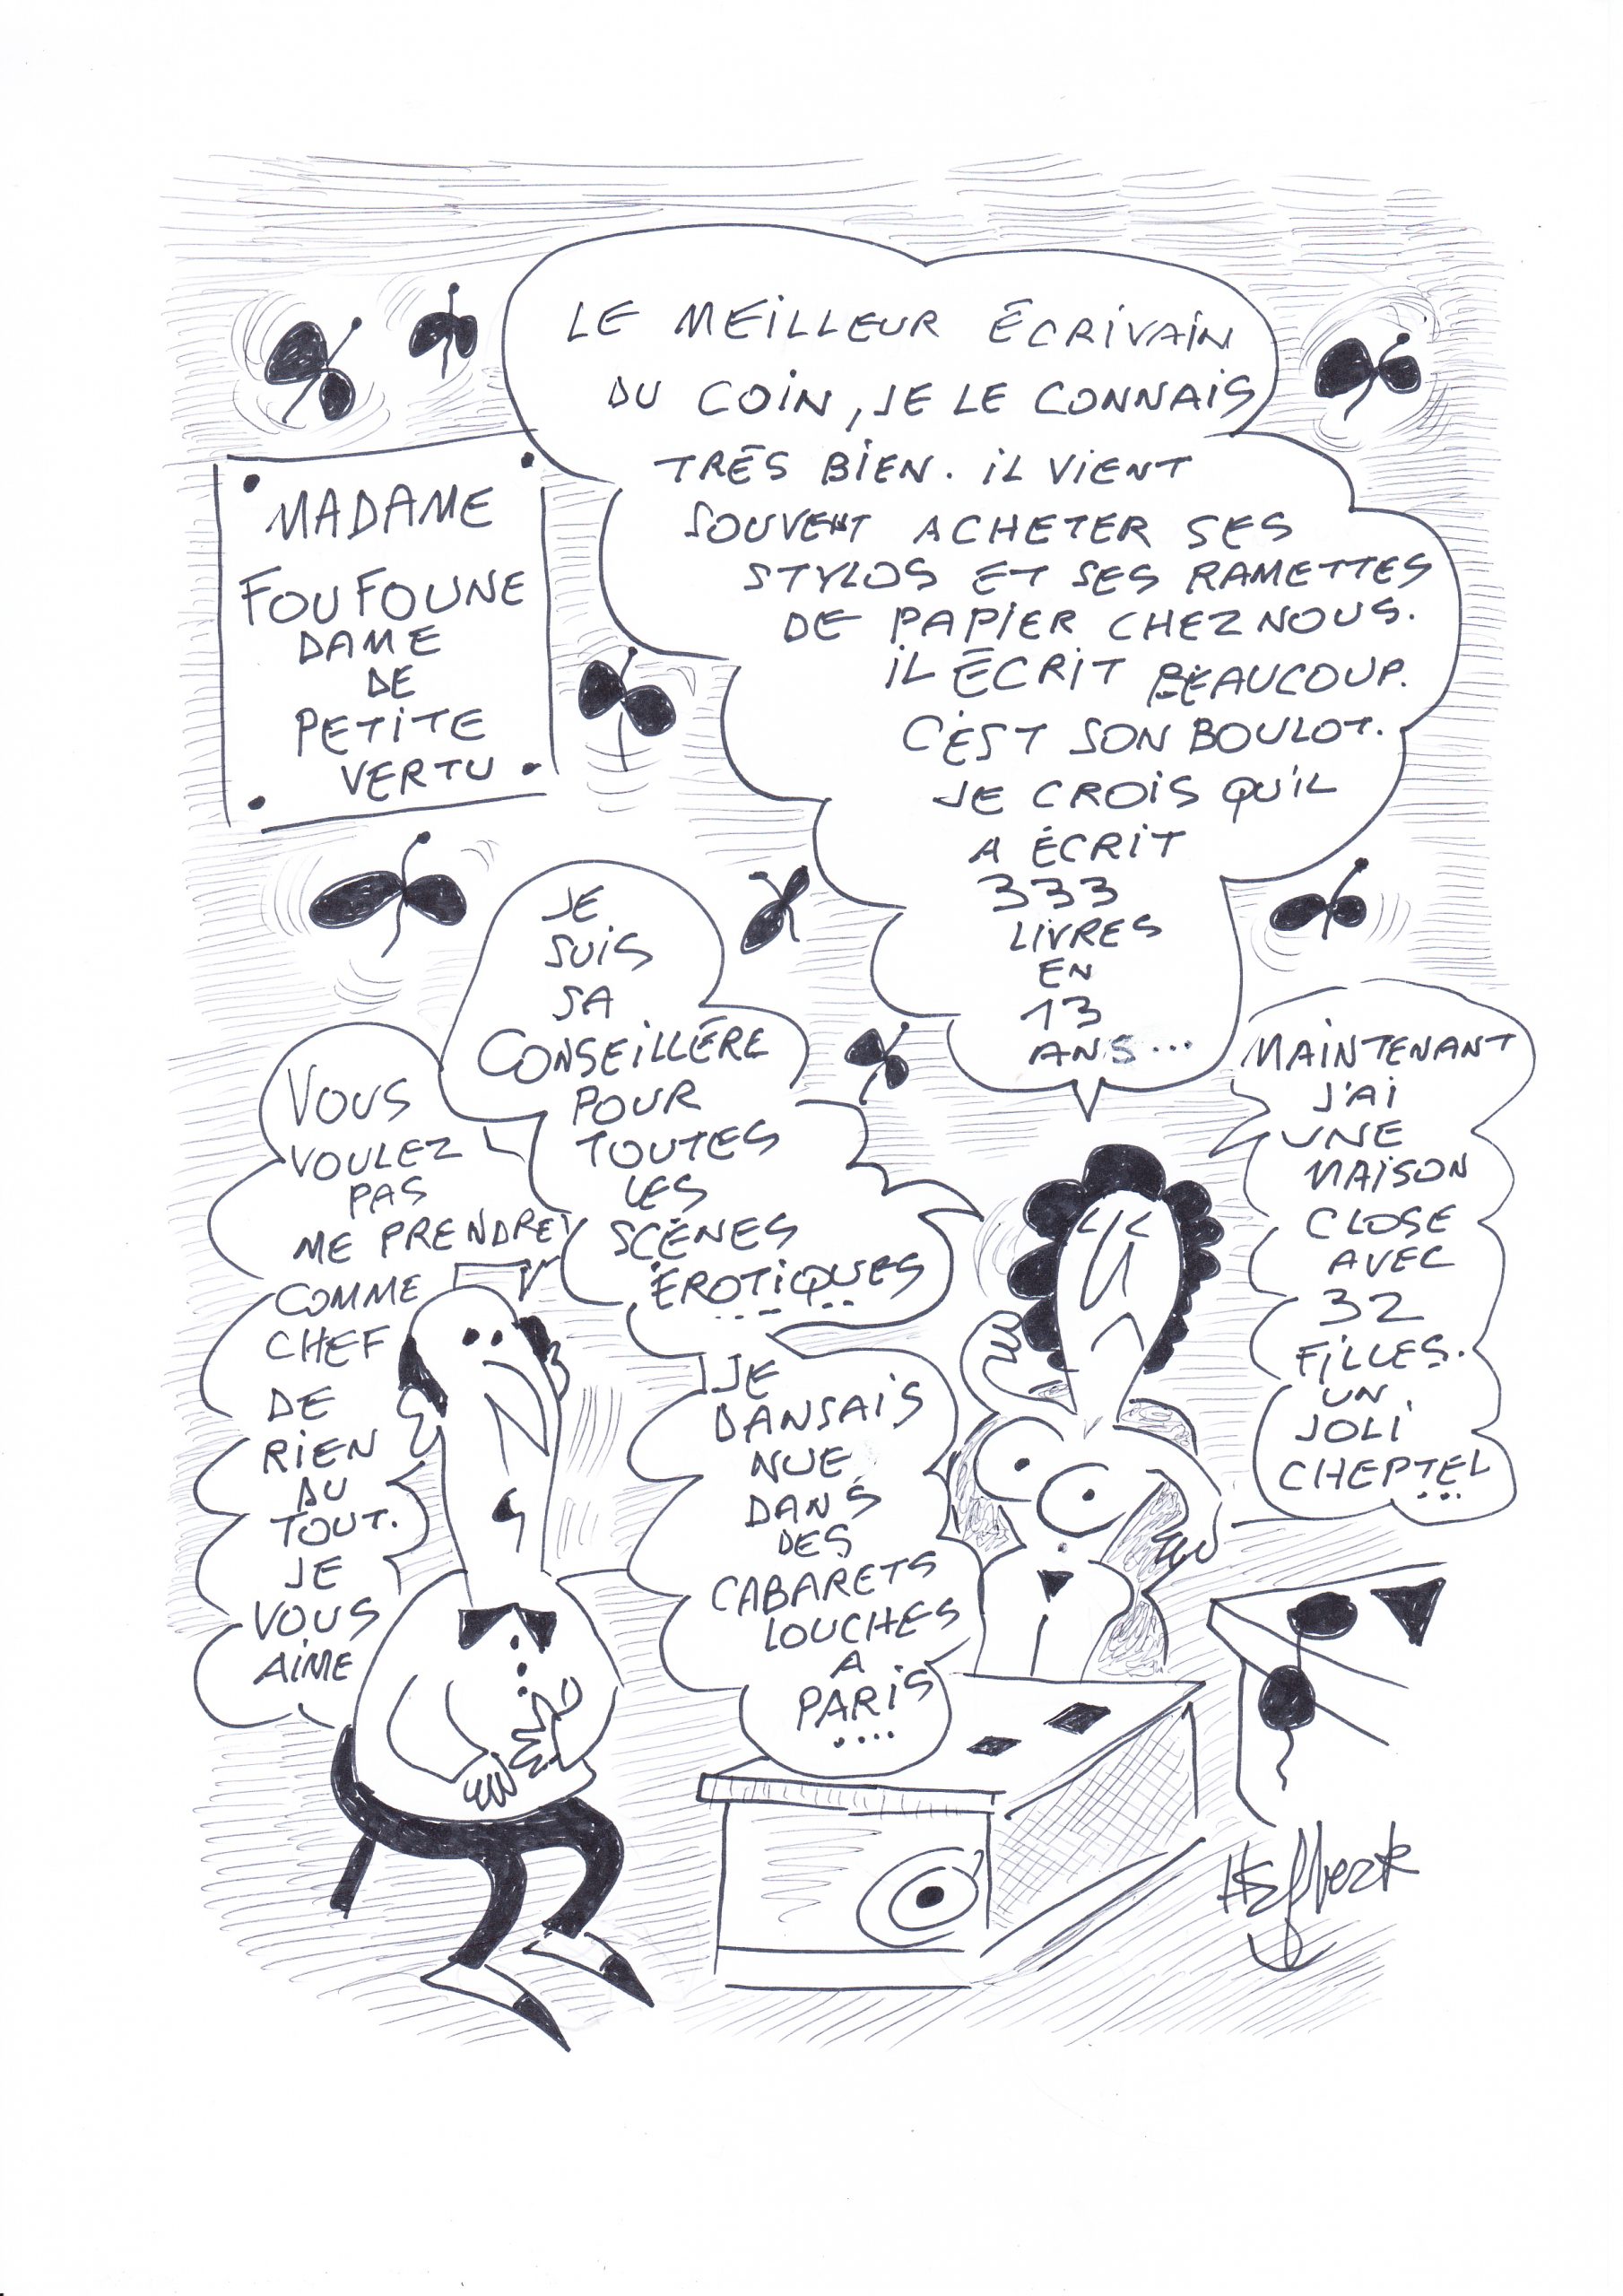 LE MEILLEUR ÉCRIVAIN
DU COIN, JE LE CONNAIS
TRÈS BIEN. IL VIENT
SOUVENT ACHETER SES
STYLOS ET SES RAMETTES
DE PAPIER CHEZ NOUS.
IL ÉCRIT BEAUCOUP.
C'EST SON BOULOT.
JE CROIS QU'IL
A ÉCRIT
333
LIVRES
EN
13
ANS...
MADAME
FOUFOUNE
DAME
DE
PETITE
VERTU
JE
SUIS
SA
CONSEILLÈRE
POUR
TOUTES
LES
SCÈNES
ÉROTIQUES
.....
VOUS
VOULEZ
PAS
ME PRENDRE
COMME
CHEF
DE
RIEN
DU
TOUT.
JE
VOUS
AIME
JE
DANSAIS
NUE
DANS
DES
CABARETS
LOUCHES
A
PARIS
....
MAINTENANT
J'AI
UNE
MAISON
CLOSE
AVEC
32
FILLES.
UN
JOLI
CHEPTEL
...